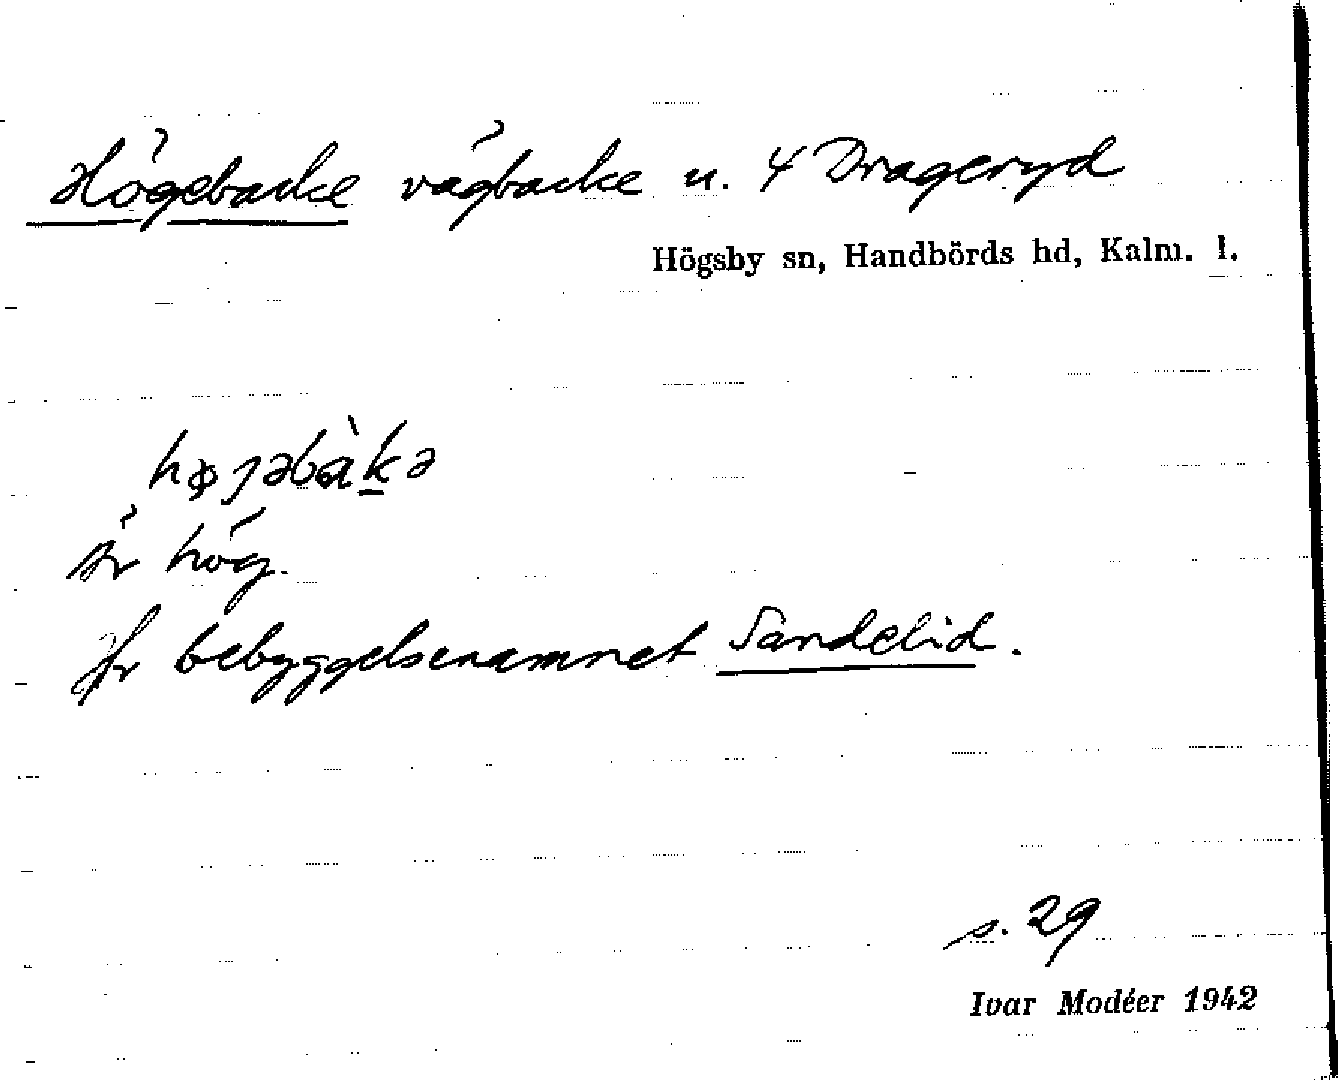 Högebacke vägbacke u. 4 Drageryd
Högsby sn, Handbörds hd, Kalm. l.
høȷəbàkə
Är hög.
Jfr bebyggelsenamnet Sandelid.
s. 29
Ivar Modéer 1942